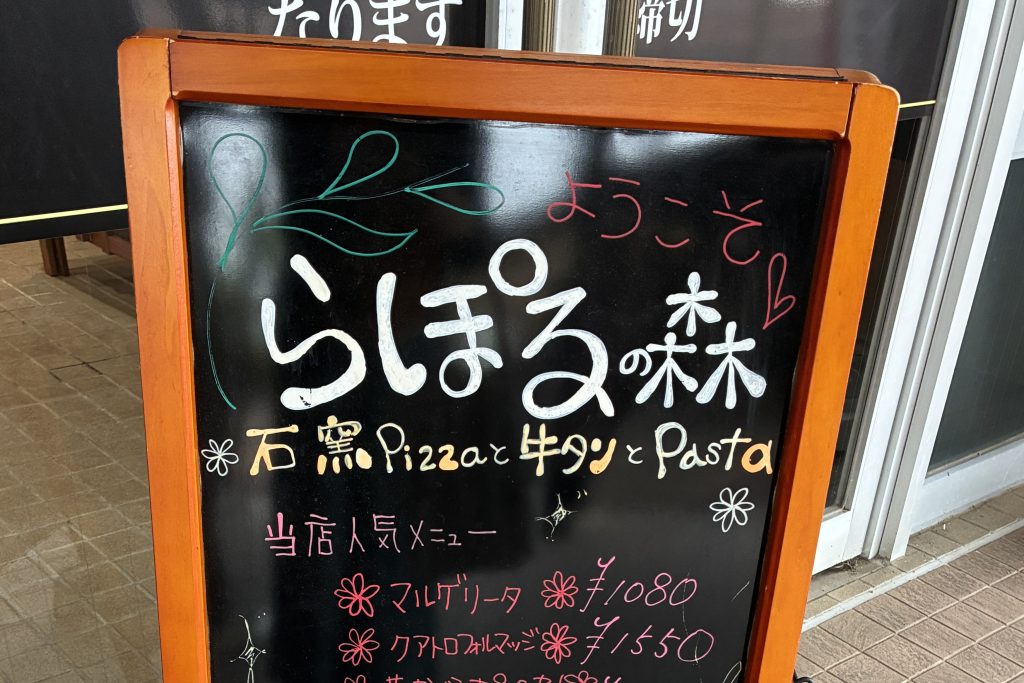 たります
締切
ようこそ
らぽるの森
石窯Pizzaと牛タンとPasta
当店人気メニュー
マルゲリータ ¥1080
クアトロフォルマッジ ¥1550